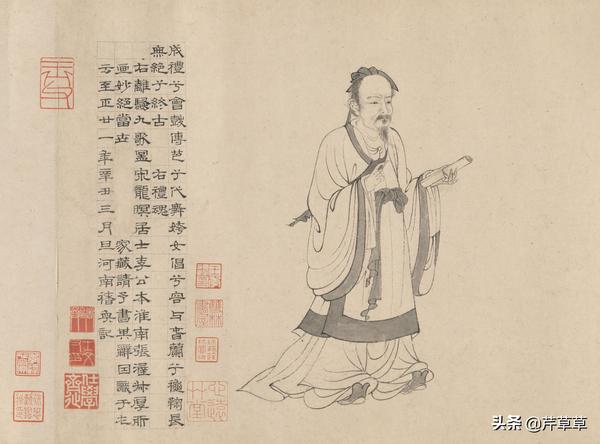 成禮兮會鼓傳芭兮代舞姱女倡兮容與春蘭兮秋鞠長
無絕兮終古 右禮魂
右離騷九歌圖宋龍眠居士李公本淮南張渥叔厚所
畫妙絕當世 家藏請予書其辭因識于左
云至正廿一年辛丑三月旦河南褚奐記
头条 @芹草草